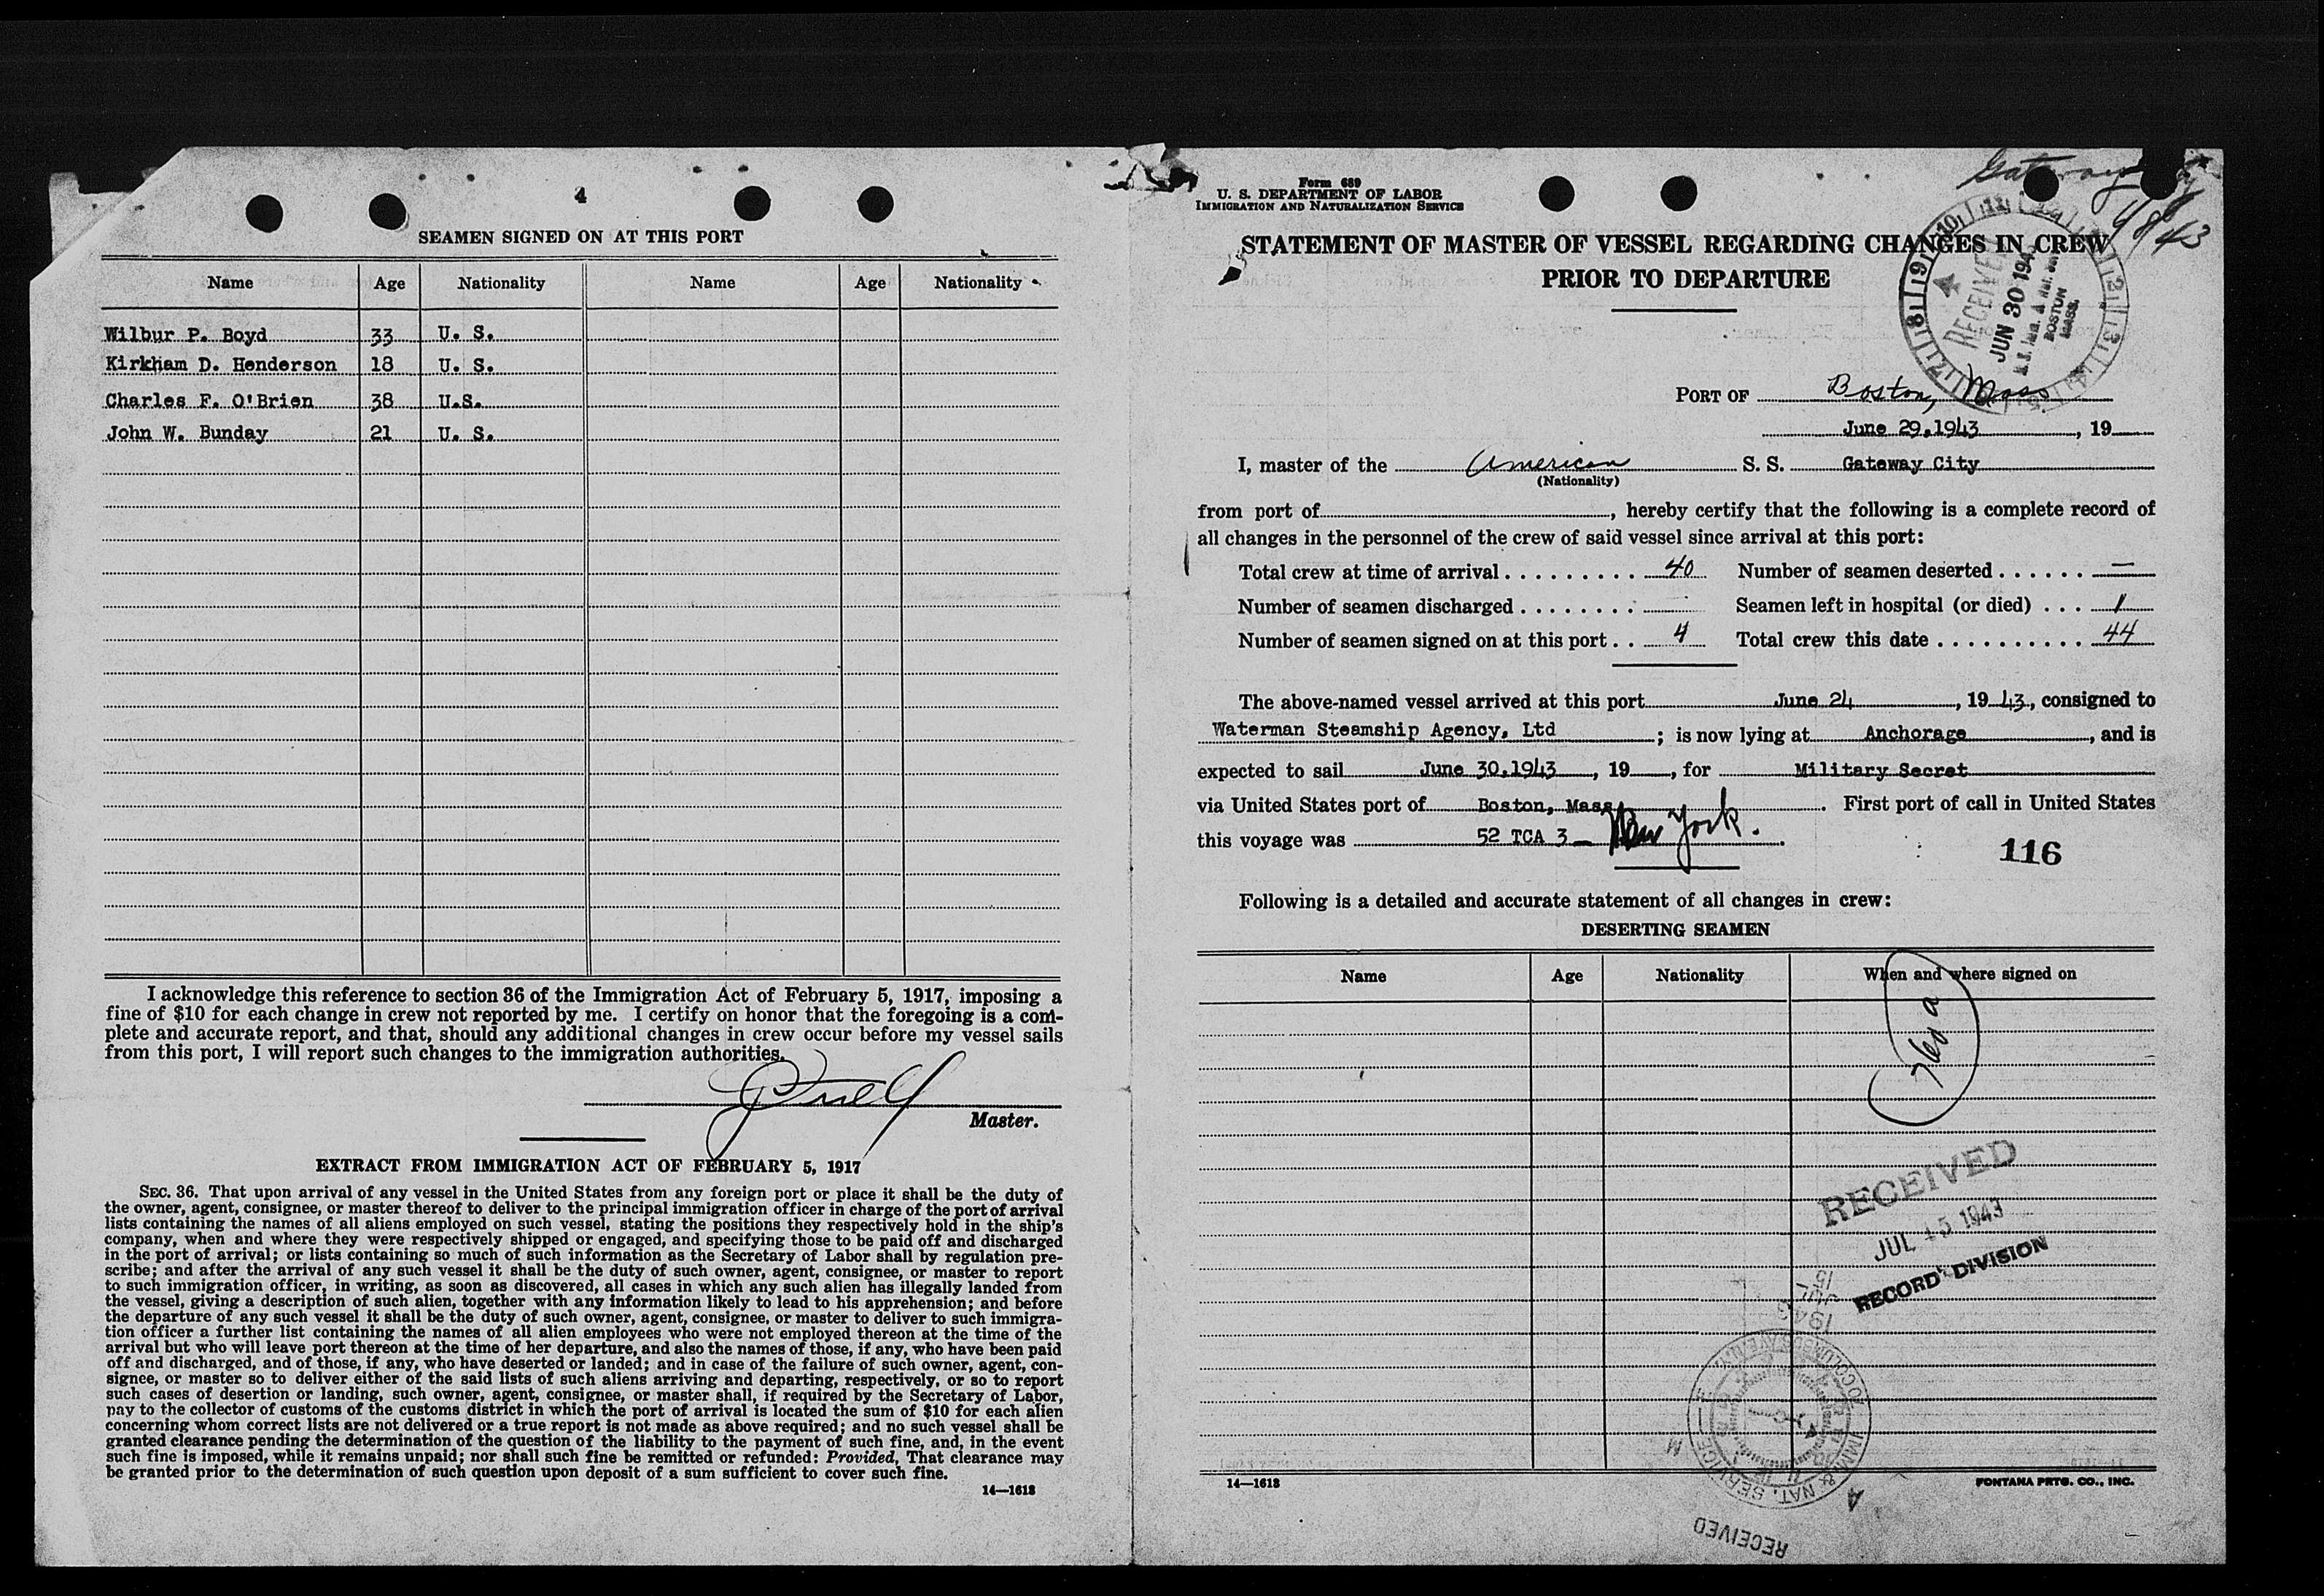 4
SEAMEN SIGNED ON AT THIS PORT
Name Age Nationality Name Age Nationality
Wilbur P. Boyd 33 U. S.
Kirkham D. Henderson 18 U. S.
Charles F. O'Brien 38 U.S.
John W. Bunday 21 U. S.
I acknowledge this reference to section 36 of the Immigration Act of February 5, 1917, imposing a
fine of $10 for each change in crew not reported by me. I certify on honor that the foregoing is a com-
plete and accurate report, and that, should any additional changes in crew occur before my vessel sails
from this port, I will report such changes to the immigration authorities.
Master.
EXTRACT FROM IMMIGRATION ACT OF FEBRUARY 5, 1917
SEC. 36. That upon arrival of any vessel in the United States from any foreign port or place it shall be the duty of
the owner, agent, consignee, or master thereof to deliver to the principal immigration officer in charge of the port of arrival
lists containing the names of all aliens employed on such vessel, stating the positions they respectively hold in the ship's
company, when and where they were respectively shipped or engaged, and specifying those to be paid off and discharged
in the port of arrival; or lists containing so much of such information as the Secretary of Labor shall by regulation pre-
scribe; and after the arrival of any such vessel it shall be the duty of such owner, agent, consignee, or master to report
to such immigration officer, in writing, as soon as discovered, all cases in which any such alien has illegally landed from
the vessel, giving a description of such alien, together with any information likely to lead to his apprehension; and before
the departure of any such vessel it shall be the duty of such owner, agent, consignee, or master to deliver to such immigra-
tion officer a further list containing the names of all alien employees who were not employed thereon at the time of the
arrival but who will leave port thereon at the time of her departure, and also the names of those, if any, who have been paid
off and discharged, and of those, if any, who have deserted or landed; and in case of the failure of such owner, agent, con-
signee, or master so to deliver either of the said lists of such aliens arriving and departing, respectively, or so to report
such cases of desertion or landing, such owner, agent, consignee, or master shall, if required by the Secretary of Labor,
pay to the collector of customs of the customs district in which the port of arrival is located the sum of $10 for each alien
concerning whom correct lists are not delivered or a true report is not made as above required; and no such vessel shall be
granted clearance pending the determination of the question of the liability to the payment of such fine, and, in the event
such fine is imposed, while it remains unpaid; nor shall such fine be remitted or refunded: Provided, That clearance may
be granted prior to the determination of such question upon deposit of a sum sufficient to cover such fine.
14—1613
Form 689
U. S. DEPARTMENT OF LABOR
IMMIGRATION AND NATURALIZATION SERVICE
Gateway
STATEMENT OF MASTER OF VESSEL REGARDING CHANGES IN CREW
PRIOR TO DEPARTURE
RECEIVED
JUN 30 194
BOSTON
MASS.
PORT OF Boston, Mass
June 29,1943, 19
I, master of the American S. S. Gateway City
(Nationality)
from port of, hereby certify that the following is a complete record of
all changes in the personnel of the crew of said vessel since arrival at this port:
Total crew at time of arrival 40 Number of seamen deserted —
Number of seamen discharged Seamen left in hospital (or died) 1
Number of seamen signed on at this port 4 Total crew this date 44
The above-named vessel arrived at this port June 24, 19 43, consigned to
Waterman Steamship Agency, Ltd; is now lying at Anchorage, and is
expected to sail June 30,1943, 19, for Military Secret
via United States port of Boston, Mass. First port of call in United States
this voyage was 52 TCA 3 — New York.
116
Following is a detailed and accurate statement of all changes in crew:
DESERTING SEAMEN
Name Age Nationality When and where signed on
RECEIVED
JUL 15 1943
RECORD DIVISION
JUL 15
1943
IMM. & NAT. SERVICE
RECEIVED
14—1613
FONTANA PRTG. CO., INC.